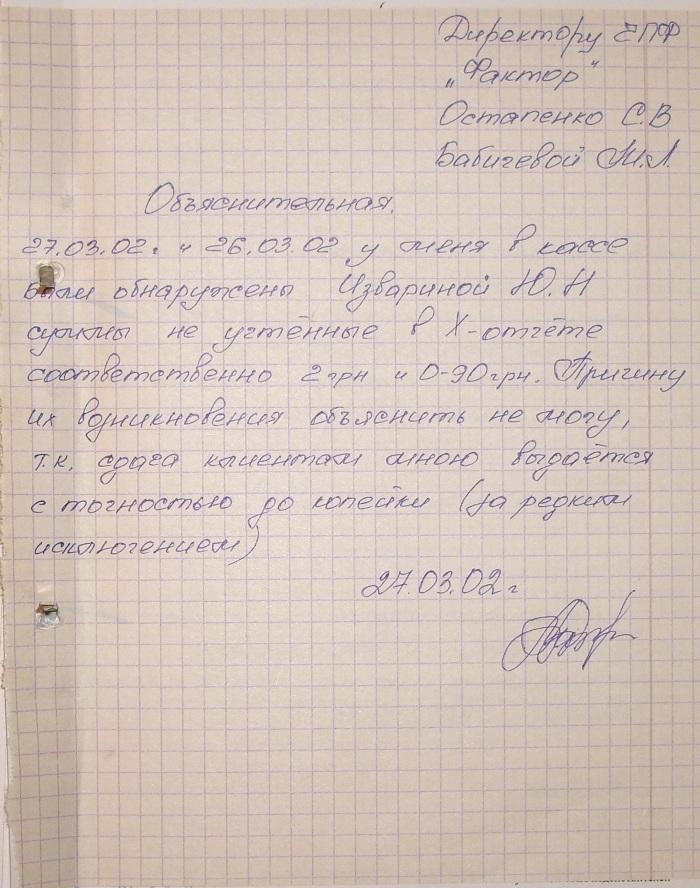 Директору ЧПФ
„Фактор"
Остапенко С.В
Бабичевой М.Л.
Объяснительная.
27.03.02г. и 26.03.02 у меня в кассе
были обнаружены Извариной Ю.Н
суммы не учтённые в Х-отчёте
соответственно 2грн и 0-90грн. Причину
их возникновения объяснить не могу,
т.к. сдача клиентам мною выдаётся
с точностью до копейки (за редким
исключением)
27.03.02г